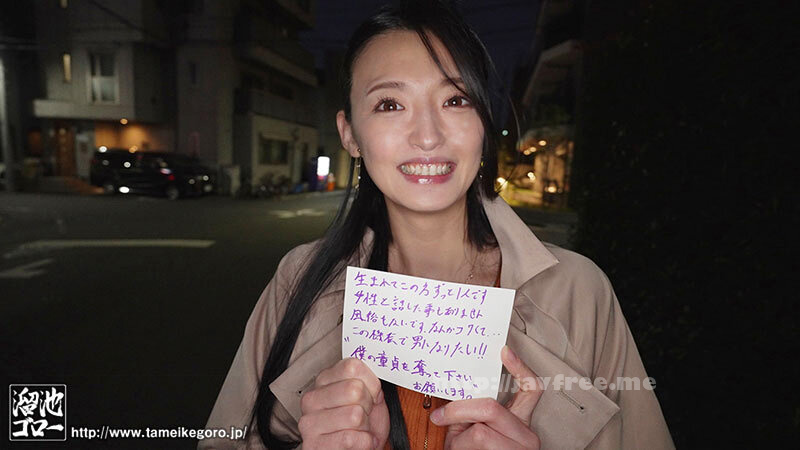 生まれてこの方ずっと1人です
女性と話した事もありません
風俗もないです、なんかコワくて...
この機会で男になりたい!!
"僕の童貞を奪って下さい"
お願いします。
http://javfree.me
溜池
ゴロー
http://www.tameikegoro.jp/